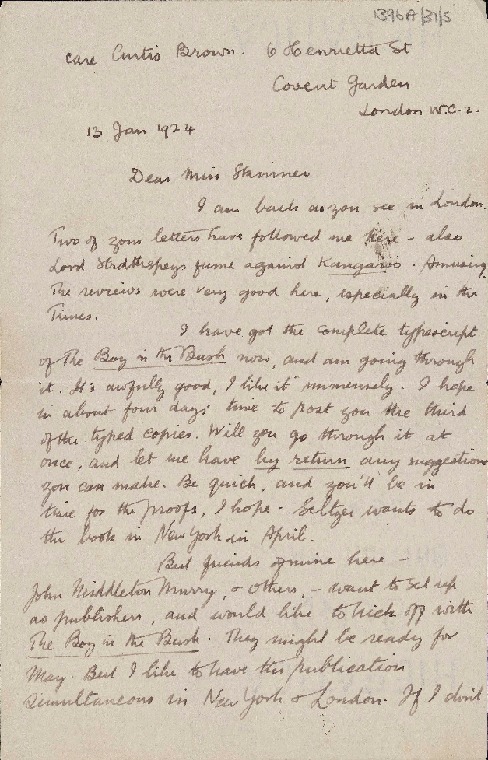 1396A/31/5
care Curtis Brown. 6 Henrietta St
Covent Garden
London W.C.2.
13 Jan 1924
Dear Miss Skinner
I am back as you see in London.
Two of your letters have followed me here - also
Lord Strathspeys fume against Kangaroo. Amusing.
The reviews were very good here, especially in the
Times.
I have got the complete typescript
of The Boy in the Bush now, and am going through
it. It's awfully good, I like it immensely. I hope
in about four days' time to post you the third
of the typed copies. Will you go through it at
once, and let me have by return any suggestion
you can make. Be quick, and you'll be in
time for the proofs, I hope. Seltzer wants to do
the book in New York in April.
But friends of mine here -
John Middleton Murry, & others, - want to set up
as publishers, and would like to kick off with
The Boy in the Bush. They might be ready for
May. But I like to have the publication
simultaneous in New York & London. If I don't